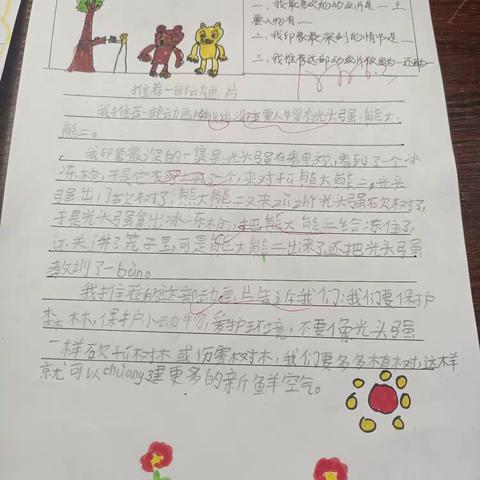 一、我最喜欢的动画片是__主
要人物有__
二、我印象最深刻的情节是__
三、我推荐这部动画片
推荐一部动画片
我推荐一部动画片熊出没主要人物有光头强、熊大、
熊二。
我印象最深的一集是,光头强在看电视,看到了一个冰
冻枪,于是它也买了个,来对fu熊大熊二,光头
强出门砍树了,熊大熊二又来zǔ zhǐ光头强砍树了,
于是光头强拿出冰冻枪,把熊大熊二给冻住了,
还关进了笼子里,可是熊大熊二出来了,还把光头强
教训了一bùn。
我推荐的这部动画片告诉我们:我们要保护
森林,保护小动物,爱护环境,不要像光头强
一样砍伐树木或伤害树木,我们要多多植树,这样
就可以chuàng建更多的新鲜空气。